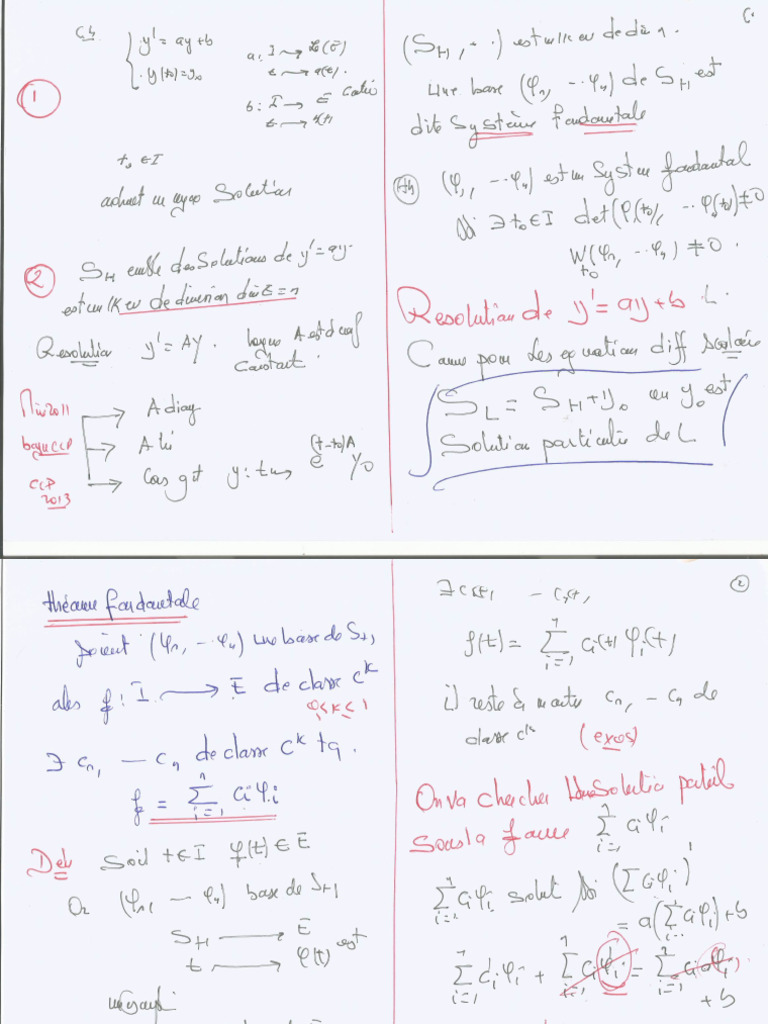 C.L
y' = ay + b
y(t₀) = y₀
a : I → L(E)
t → a(t).
b : I → E
①
t₀ ∈ I
admet une unique Solution
② S_H emble des Solutions de y' = ay.
est un IK ev de dimension dim E = n
Resolution y' = AY. lorsque A est à coef
Constant.
Mines 2011 → A diag
CCP → A
CCP 2013 → Cas gen y : t ↦ e^{(t-t₀)A} y₀
(S_H, + .) est un IK ev de dim n.
une base (φ₁, ... φₙ) de S_H est
dite Système fondamentale
Th (φ₁, ... φₙ) est un System fondamental
ssi ∃ t₀ ∈ I det(φ₁(t₀), ... φₙ(t₀)) ≠ 0
W(φ₁, ... φₙ) ≠ 0.
t₀
Resolution de y' = ay + b L.
Comme pour les equation diff scalaire
S_L = S_H + y₀ ou y₀ est
Solution particulie de L
théoreme fondamentale
soient (φ₁, ... φₙ) une base de S_H
alors f : I → E de classe C^k
0 ≤ k ≤ 1
∃ c₁, — cₙ de classe C^k tq.
f = Σ_{i=1}^{n} ci φi
Dem Soit t ∈ I f(t) ∈ E
Or (φ₁, — φₙ) base de S_H
S_H → E est
→ φ(t)
②
∃ c₁(t), — cₙ(t),
f(t) = Σ_{i=1}^{n} ci(t) φi(t)
il reste à montrer c₁, — cₙ de
classe C^k (exos)
On va chercher une Solution
sous la forme Σ_{i=1}^{n} ci φi
Σ_{i=1}^{n} ci φi solut ssi (Σ ci φi)'
= a(Σ_{i=1}^{n} ci φi) + b
Σ_{i=1}^{n} c'i φi + Σ_{i=1}^{n} ci φ'i = Σ_{i=1}^{n} ci aφi
+ b